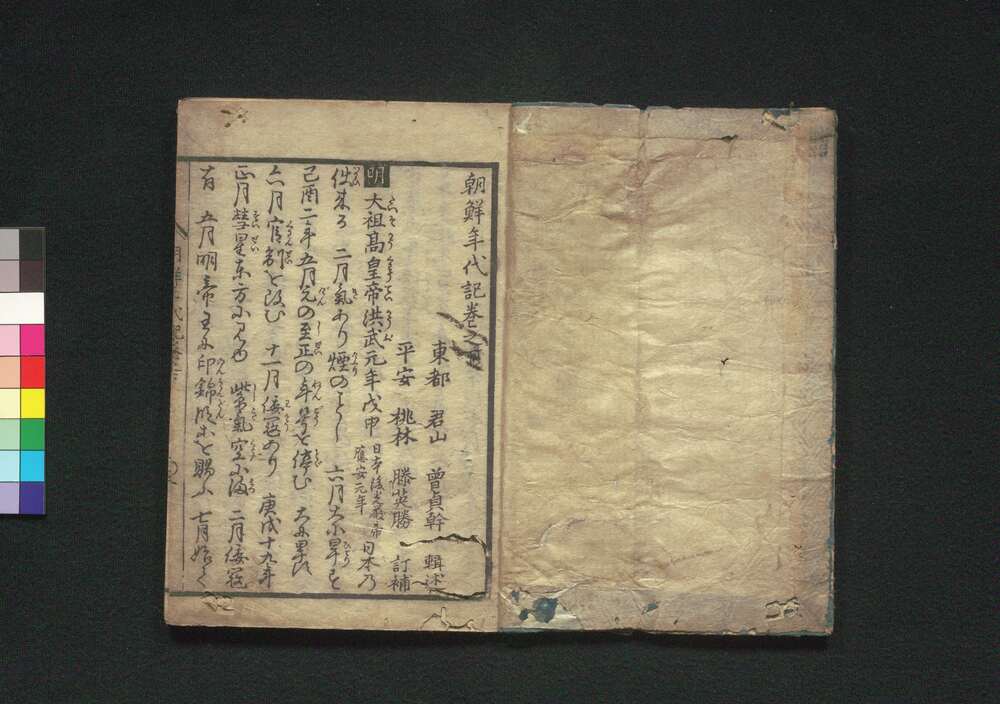 朝鮮年代記巻之
東都 君山 曽貞幹 輯述
平安 桃林 勝英勝 訂補
明 大祖高皇帝洪武元年戊申 日本後光厳帝應安元年 日本乃
使来る 二月氣あり煙のことし 六月大小旱す
己酉二年五月元の至正の年号を停む 大旱
六月官制を改む 十一月倭冦あり 庚戌十九年
正月彗星東方にみゆ 紫氣空に満 二月倭冦
有 五月明帝王に印錦 を賜ふ 七月始て